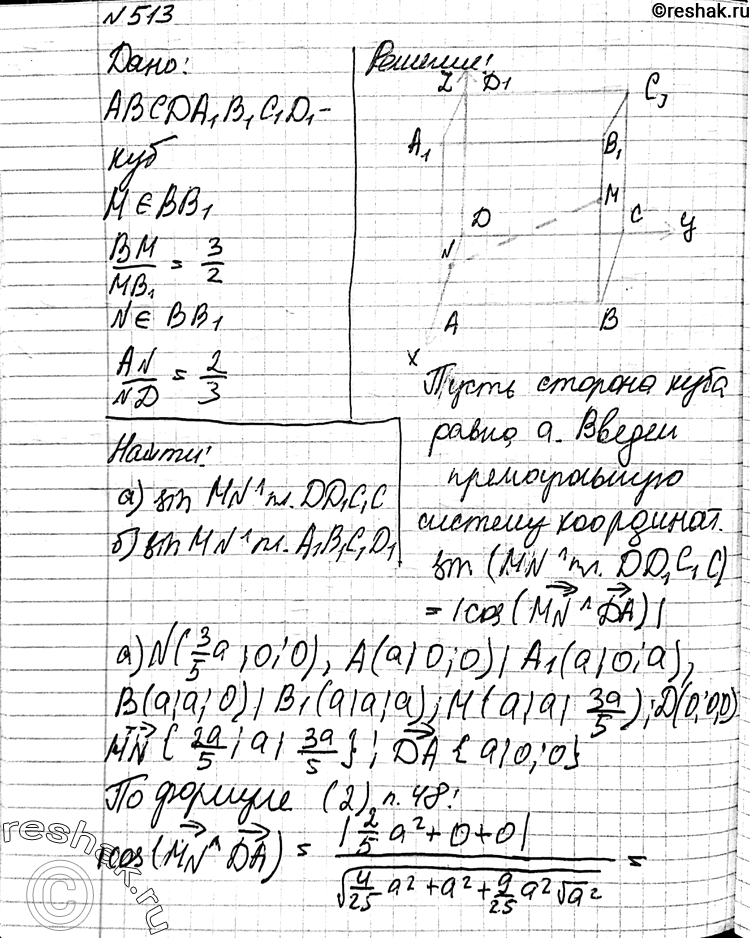 ©reshak.ru
№513
Дано:
ABCDA₁B₁C₁D₁-
куб
M ∈ BB₁
BM/MB₁ = 3/2
N ∈ BB₁
AN/ND = 2/3
Найти:
а) sin MN^пл. DD₁C₁C
б) sin MN^пл. A₁B₁C₁D₁
Решение:
Z D₁ C₁
A₁ B₁
M
D C y
N
A B
x
Пусть сторона куба
равна a. Введем
прямоугольную
систему координат.
sin (MN^пл. DD₁C₁C)
= |cos(MN^DA)|
а) N(3/5 a; 0; 0), A(a; 0; 0); A₁(a; 0; a),
B(a; a; 0); B₁(a; a; a); M(a; a; 3a/5); D(0; 0; 0)
MN {2a/5; a; 3a/5}; DA {a; 0; 0}
По формуле (2) п. 48:
|cos(MN^DA) = |2/5 a² + 0 + 0| / √(4/25 a² + a² + 9/25 a² √a²) =
reshak.ru
©